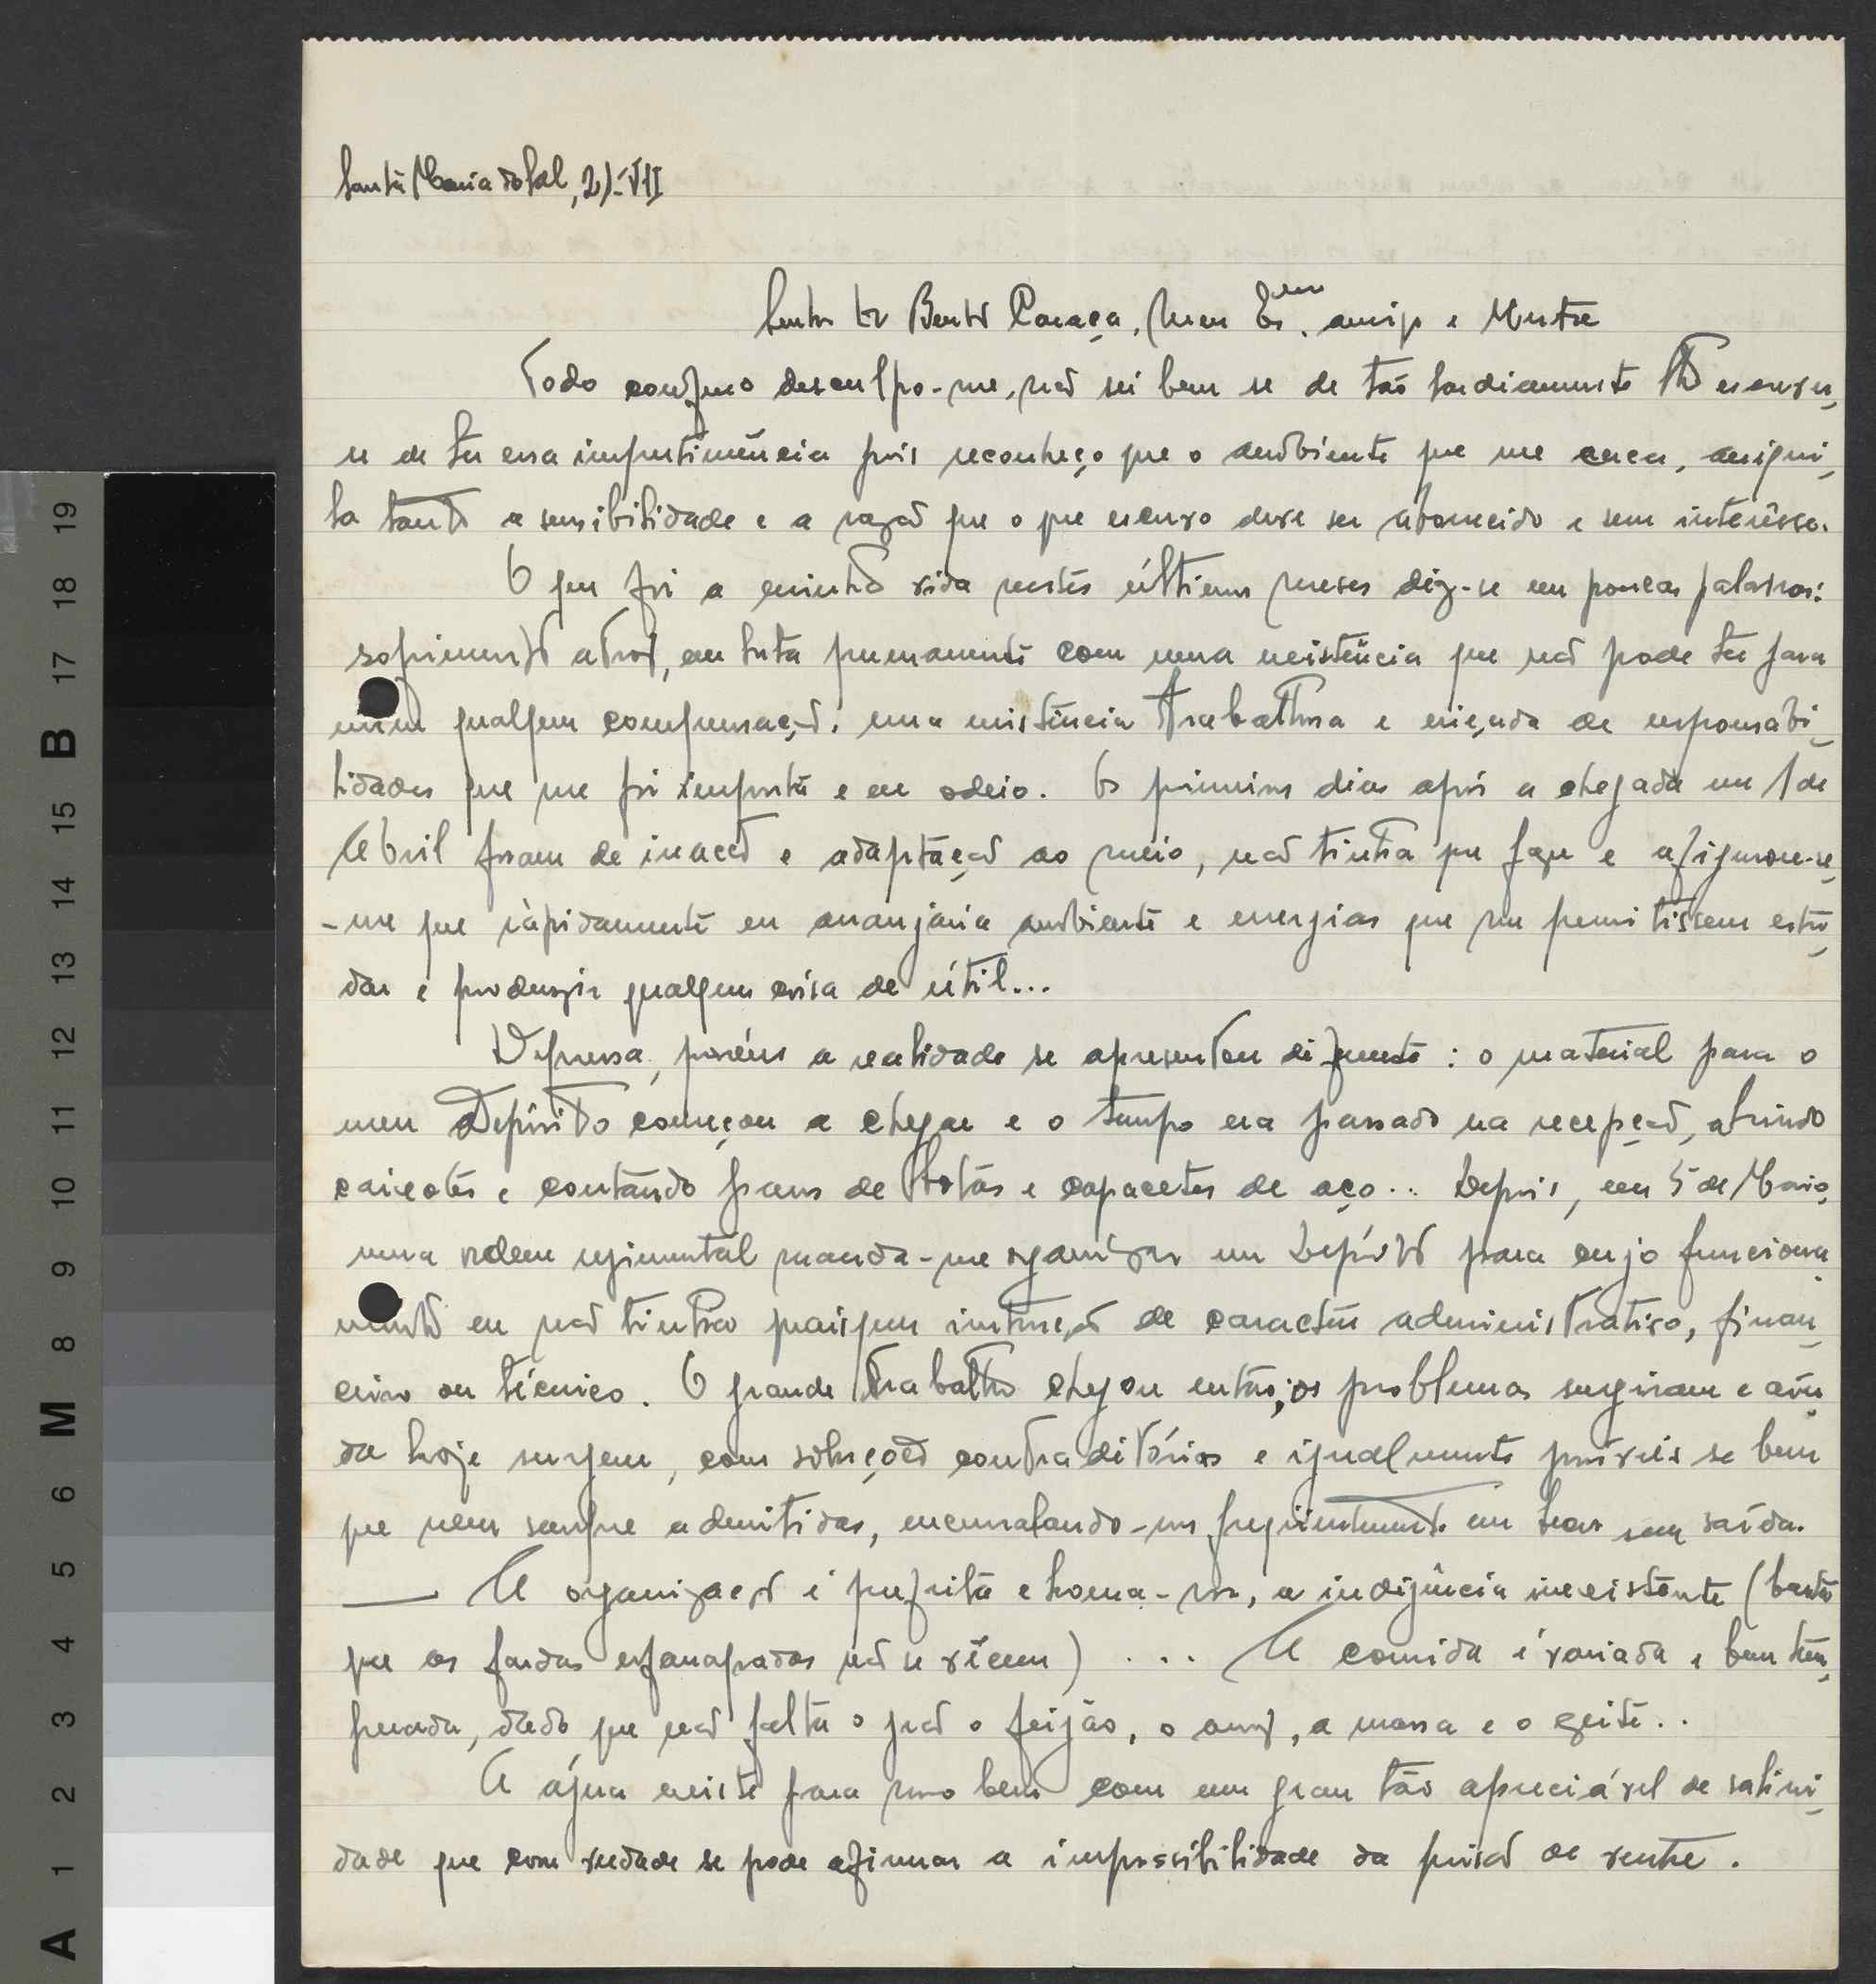 Santa Maria do Sal, 21-VII
Senhor Dr Bento Caraça, Meu Exmo. amigo e Mestre
Todo confuso desculpo-me, não sei bem se de tão tardiamente lho escrever,
se de ter essa impertinência pois reconheço que o ambiente que me cerca, aniqui-
la tanto a sensibilidade e a razão que o que escrevo deve ser aborrecido e sem interêsse.
O que foi a minha vida nestes últimos meses diz-se em poucas palavras:
sofrimento atroz, em luta permanente com uma existência que não pode ter para
mim qualquer compensação: uma existência trabalhosa e eriçada de responsabi-
lidades que me foi imposta e eu odeio. Os primeiros dias após a chegada em 1 de
Abril foram de inacção e adaptação ao meio, não tinha que fazer e afigurou-se-
-me que ràpidamente eu arranjaria ambiente e energias que me permitissem estu-
dar e produzir qualquer coisa de útil...
Depressa, porém a realidade se apresentou diferente: o material para o
meu Depósito começou a chegar e o tempo era passado na recepção, abrindo
caixotes e contando pares de botas e capacetes de aço.. Depois, em 5 de Maio,
uma ordem regimental manda-me organizar um Depósito para cujo funciona-
mento eu não tinha quaisquer instrução de caracter administrativo, finan-
ceiro ou técnico. O grande trabalho chegou então; os problemas surgiram e ain-
da hoje surgem, com soluções contraditórias e igualmente possíveis se bem
que nem sempre admitidas, encurralando-nos freqüentemente em becos sem saída.
— A organização é perfeita e honra-nos, a indigência inexistente (basta
que as fardas esfarrapadas não se vêem) ... A comida é variada e bem tem-
perada, dado que não falta o grão o feijão, o arroz, a massa e o azeite..
A água existe para uso bem com um grau tão apreciável de salini-
dade que com verdade se pode afirmar a impossibilidade da prisão de ventre.